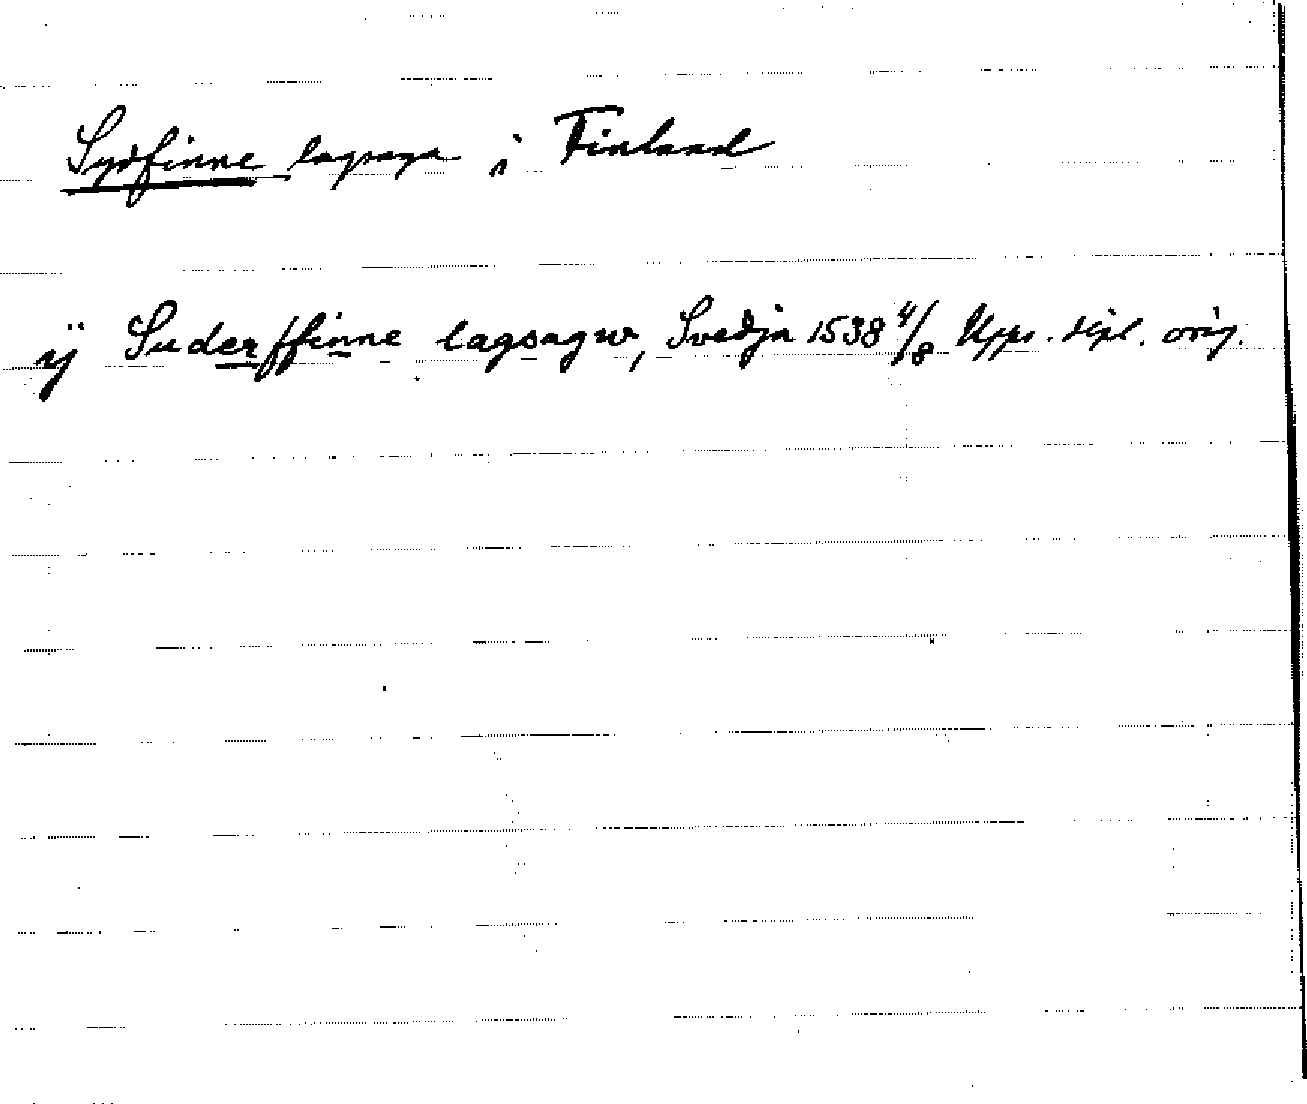 Sydfinne lagsaga i Finland
ÿ Suderffinne lagsagw, Svedja 1538 4/8 Upps. dipl. orig.